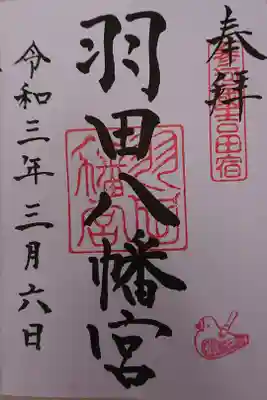 奉拝
吉田宿
羽田八幡宮
羽田
八幡宮
令和三年三月六日